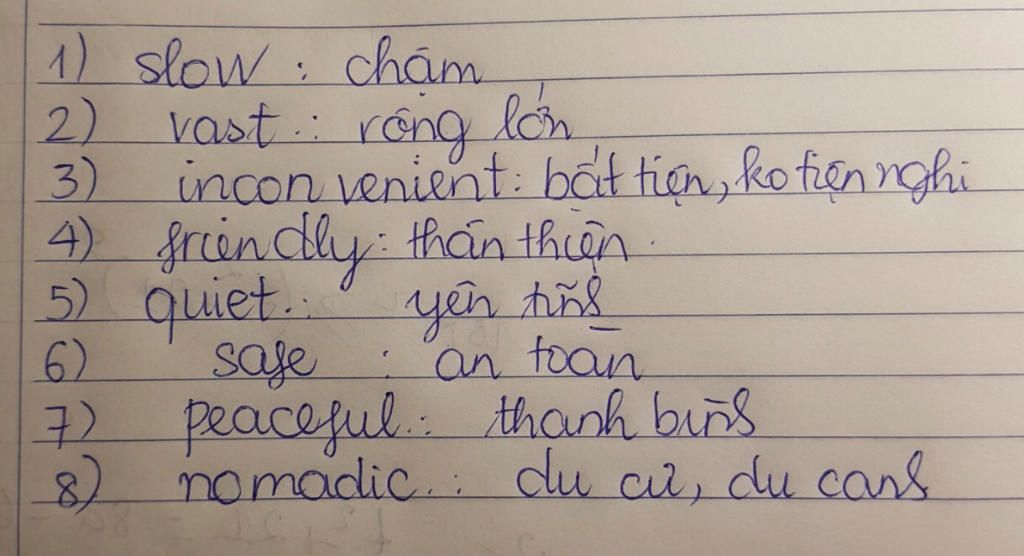 1) slow : chậm
2) vast : rộng lớn
3) inconvenient : bất tiện, ko tiện nghi
4) friendly : thân thiện
5) quiet : yên tĩnh
6) safe : an toàn
7) peaceful : thanh bình
8) nomadic : du cư, du canh